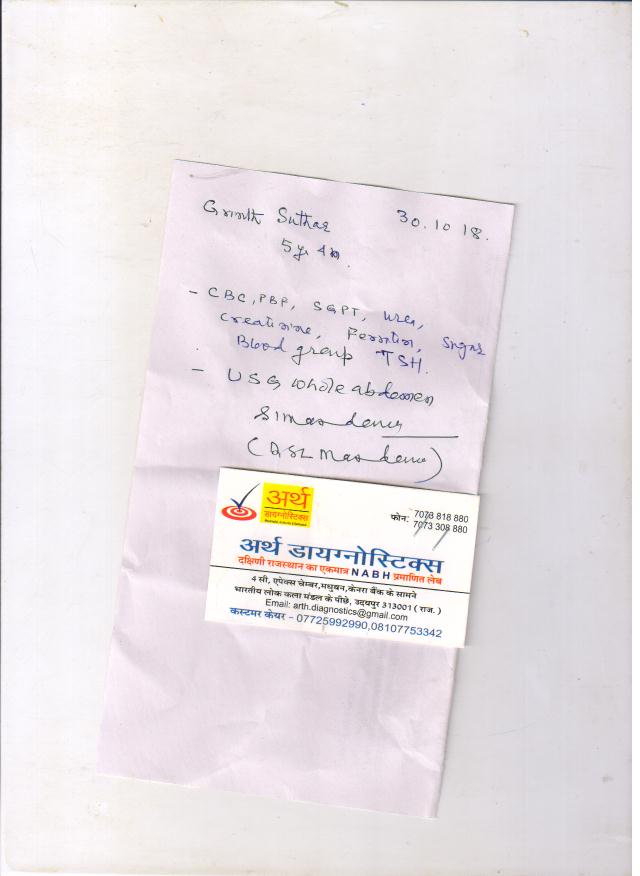 Suthar 30.10.18.
5 yr 4m
- CBC, PBF, SGPT, urea,
creatinine, Ferritin, Sugar
Blood group TSH.
- USG whole abdomen
अर्थ
डायग्नोस्टिक्स
फोन: 7073 818 880
7073 308 880
अर्थ डायग्नोस्टिक्स
दक्षिणी राजस्थान का एकमात्र NABH प्रमाणित लेब
4 सी, एपेक्स चेम्बर,मधुबन,केनरा बैंक के सामने
भारतीय लोक कला मंडल के पीछे, उदयपुर 313001 ( राज. )
Email: arth.diagnostics@gmail.com
कस्टमर केयर - 07725992990,08107753342